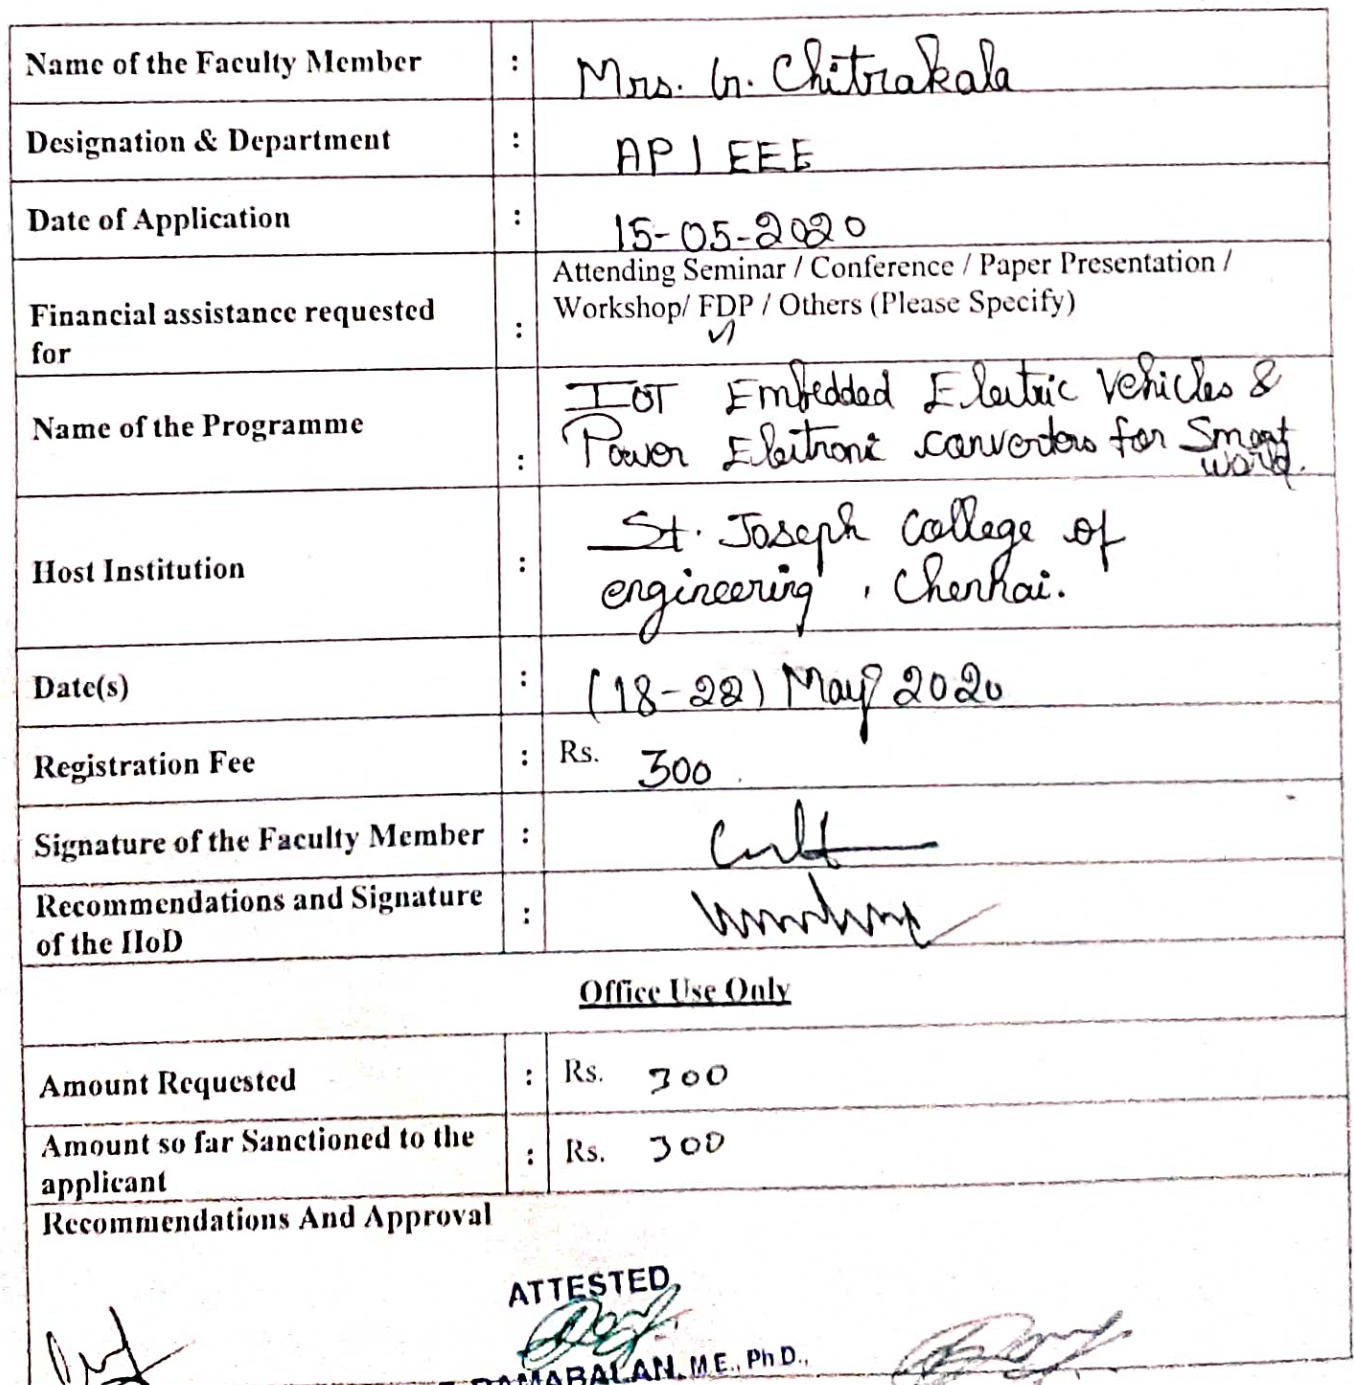 Name of the Faculty Member : Mrs. G. Chitrakala
Designation & Department : AP / EEE
Date of Application : 15-05-2020
Attending Seminar / Conference / Paper Presentation /
Financial assistance requested for : Workshop/ FDP / Others (Please Specify)
Name of the Programme : IOT Embedded Electric Vehicles &
Power Electronic converters for Smart
world.
Host Institution : St. Joseph College of
engineering, Chennai.
Date(s) : (18-22) May 2020
Registration Fee : Rs. 300
Signature of the Faculty Member :
Recommendations and Signature
of the HoD :
Office Use Only
Amount Requested : Rs. 300
Amount so far Sanctioned to the
applicant : Rs. 300
Recommendations And Approval
ATTESTED
RAMABALAN, M.E., Ph.D.,